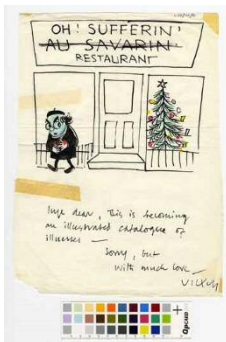 OH! SUFFERIN'
AU SAVARIN
RESTAURANT
Inge dear, This is becoming
an illustrated catalogue of
illnesses —
Sorry, but
with much love —
VICKY